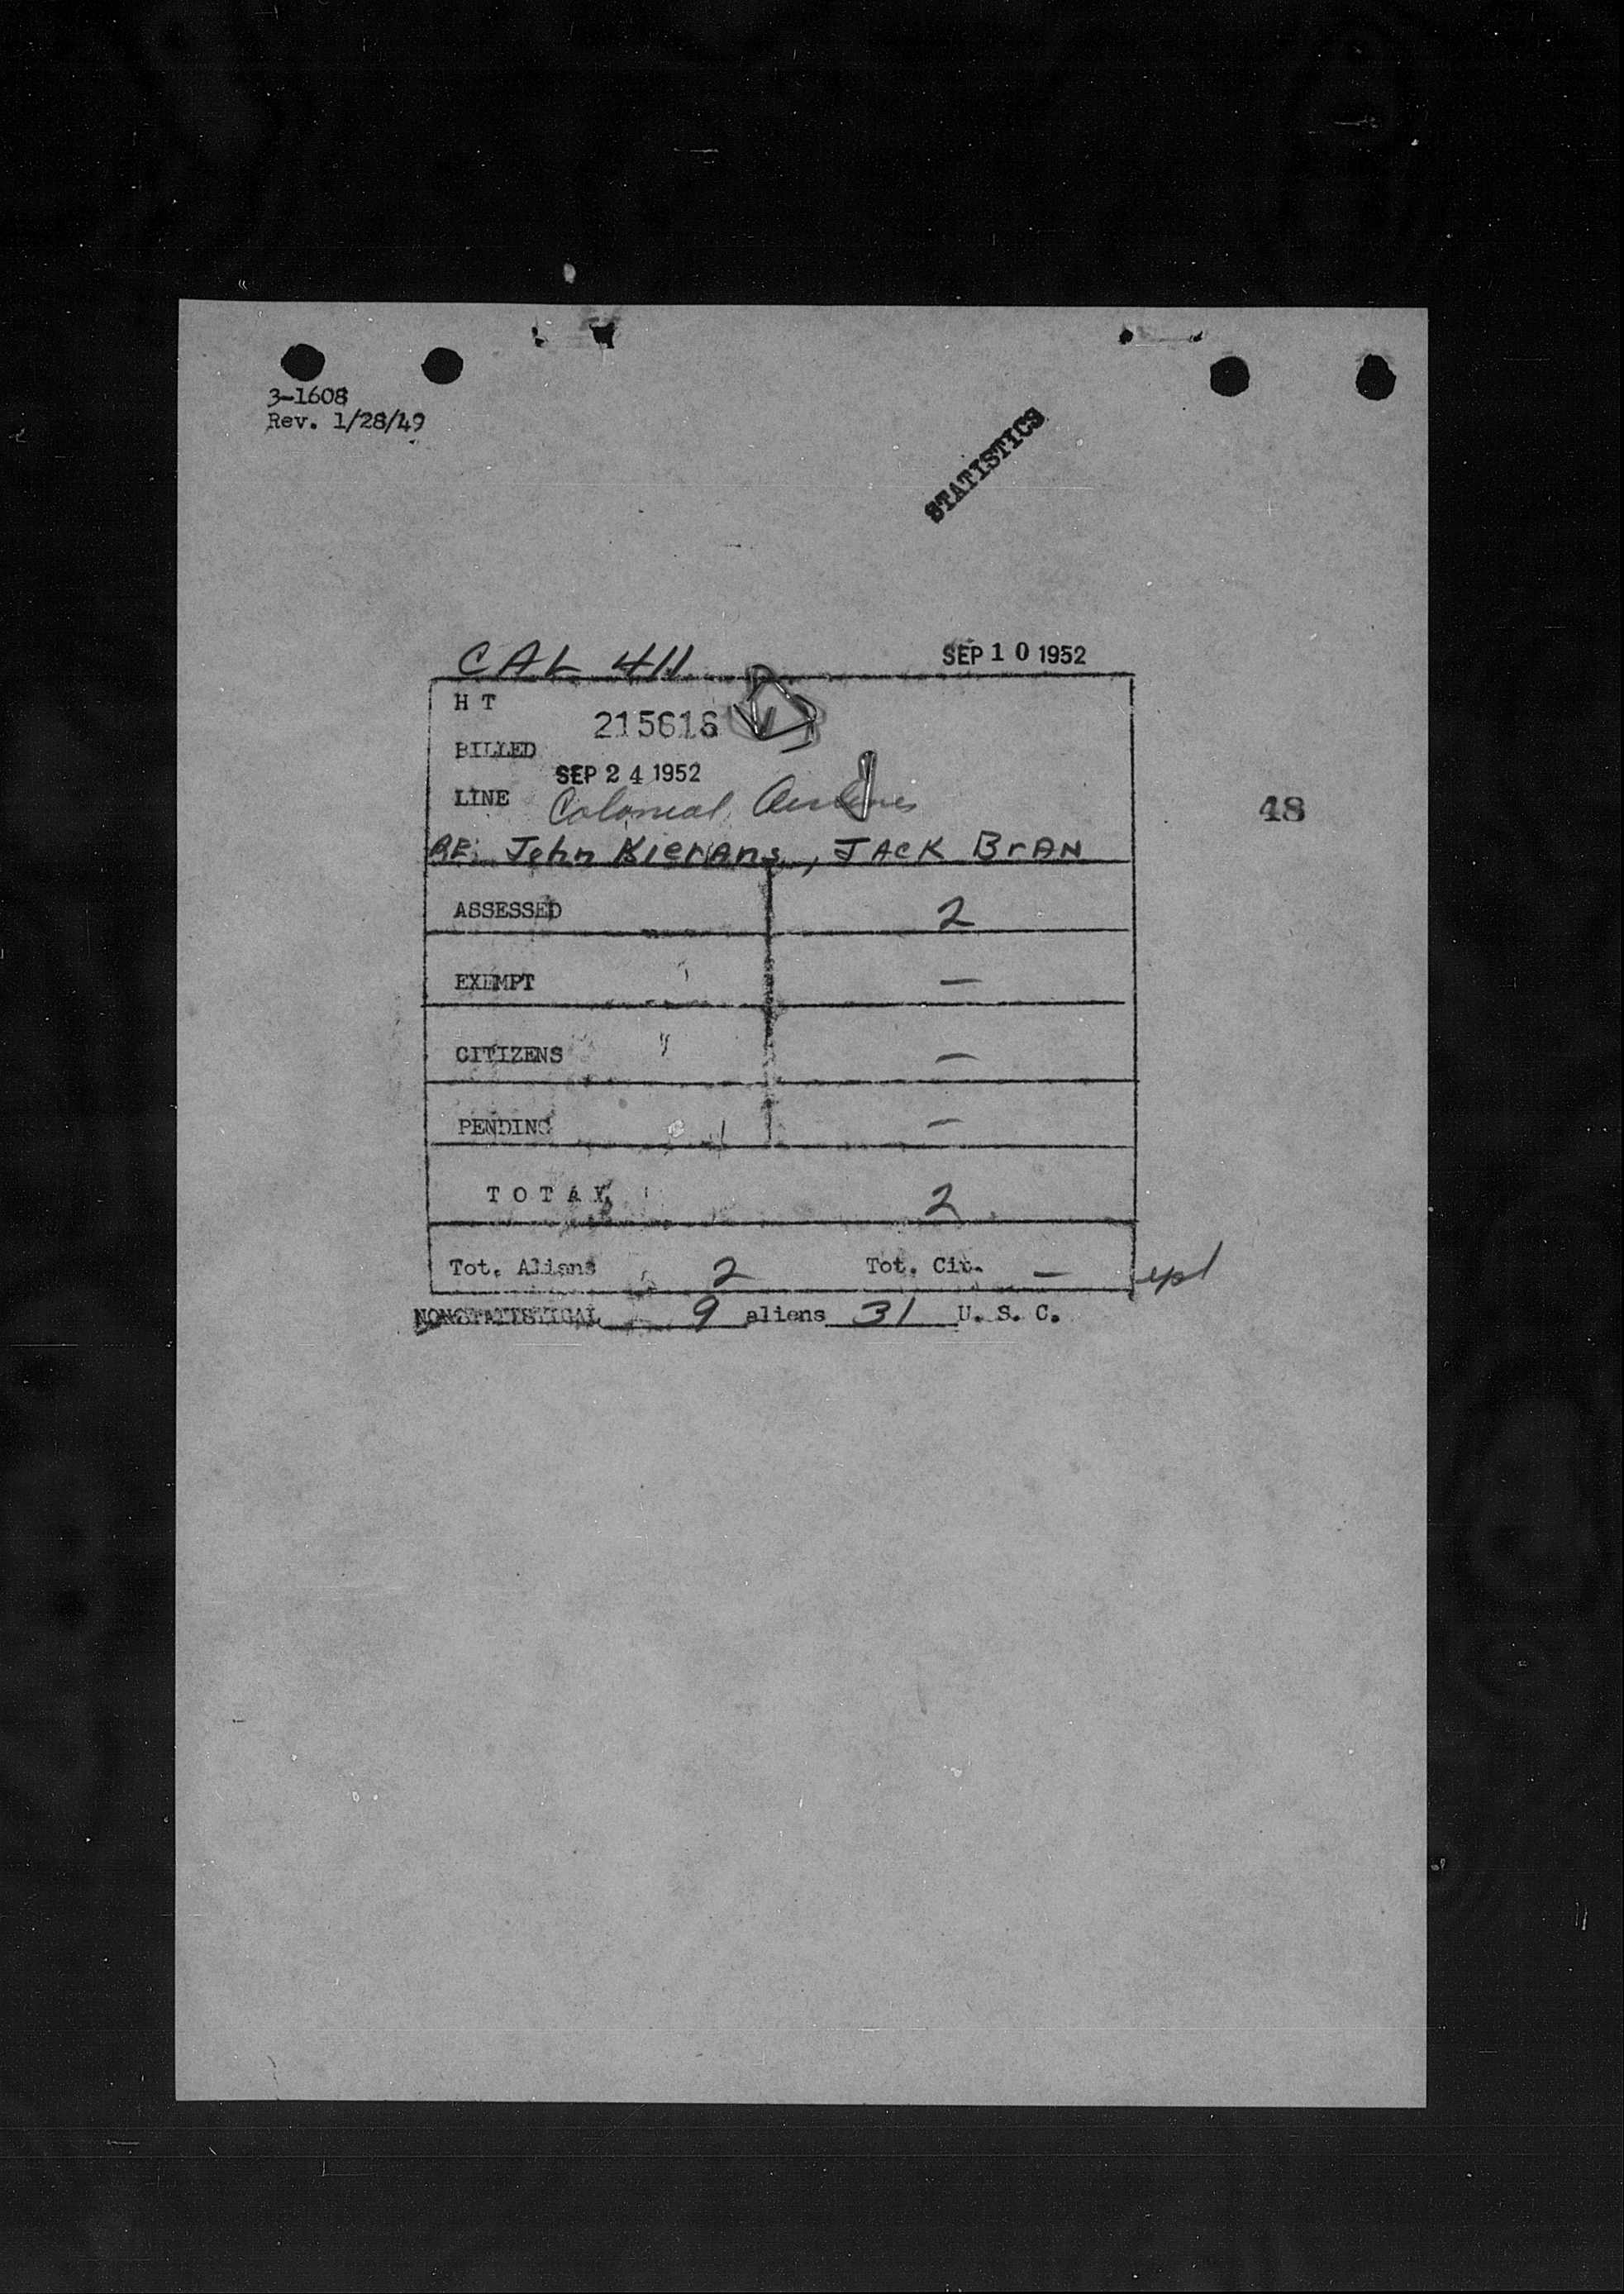 3-1608
Rev. 1/28/49
STATISTICS
CAL 411 SEP 10 1952
H T 215616
BILLED SEP 24 1952
LINE Colonial Airlines
48
RE: John Kierans, JACK BrAN
ASSESSED 2
EXEMPT —
CITIZENS —
PENDING —
T O T A L 2
Tot. Aliens 2 Tot. Cit. —
NONSTATISTICAL 9 aliens 31 U. S. C.